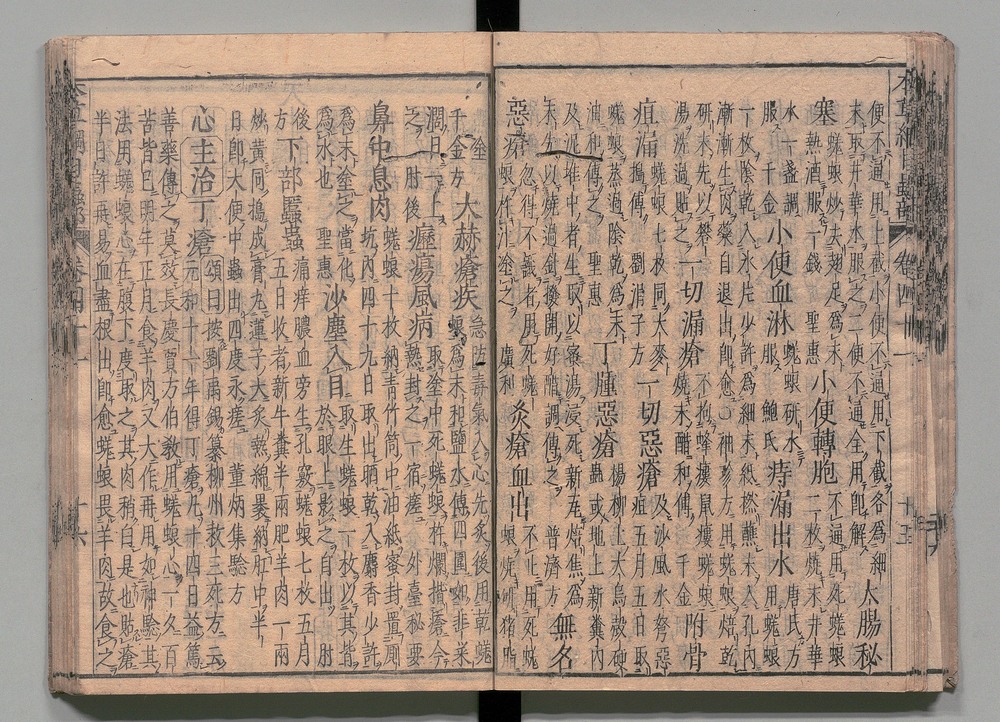 便不通用上截小便不通用下截各爲細
末取井華水服之二便不通全用即解
大腸秘
塞
蜣蜋炒去翅足爲末
熱酒服一錢聖惠
小便轉胞
不通用死蜣蜋
二枚燒末井華
水一盞調
服千金
小便血淋
蜣蜋研水
服鮑氏
痔漏出水
唐氏方
用蜣蜋
一枚陰乾入氷片少許爲細末紙撚蘸末入孔内
漸漸生肉藥自退出即愈○神珍方用蜣蜋焙乾
研末先以礬
湯洗過貼之
一切漏瘡
不拘蜂瘻鼠瘻蜣蜋
燒末醋和傅千金
附骨
疽漏
蜣蜋七枚同大麥
擣傅劉涓子方
一切惡瘡
及沙風水弩惡
疽五月五日取
蜣蜋蒸過陰乾爲末
油和傅之聖惠
丁腫惡瘡
楊柳上大烏殻硬
蟲或地上新糞内
及泥堆中者生取以蜜湯浸死新瓦焙焦爲
末先以燒過針撥開好醋調傅之普濟方
無名
惡瘡
忽得不識者用死蜣
蜋杵汁塗之廣利
灸瘡血出
不止用死蜣
蜋燒研猪脂
塗
千金方
大赫瘡疾
急防毒氣入心先灸後用乾蜣
蜋爲末和鹽水傅四圍如非米
濶日一上
之肘後
癧瘍風病
取塗中死蜣蜋杵爛揩瘡令
熱封之一宿瘥外臺秘要
鼻中息肉
蜣蜋十枚納青竹筒中油紙密封置厠
坑内四十九日取出晒乾入麝香少許
爲末塗之當化
爲水也聖惠
沙塵入目
取生蜣蜋一枚以其背
於眼上影之自出肘
後
方
下部䘌蟲
痛痒膿血旁生孔竅蜣蜋七枚五月
五日收者新牛糞半兩肥羊肉一兩
炒黄同擣成膏丸蓮子大炙熱綿裹納肛中半
日即大便中蟲出四度永瘥董炳集驗方
心主治丁瘡
頌曰按劉禹錫纂柳州救三死方云
元和十一年得丁瘡凡十四日益篤
善藥傅之莫效長慶賈方伯教用蜣蜋心一夕百
苦皆已明年正月食羊肉又大作再用如神驗其
法用蜣蜋心在腹下度取之其肉稍白是也貼瘡
半日許再易血盡根出即愈蜣蜋畏羊肉故食之